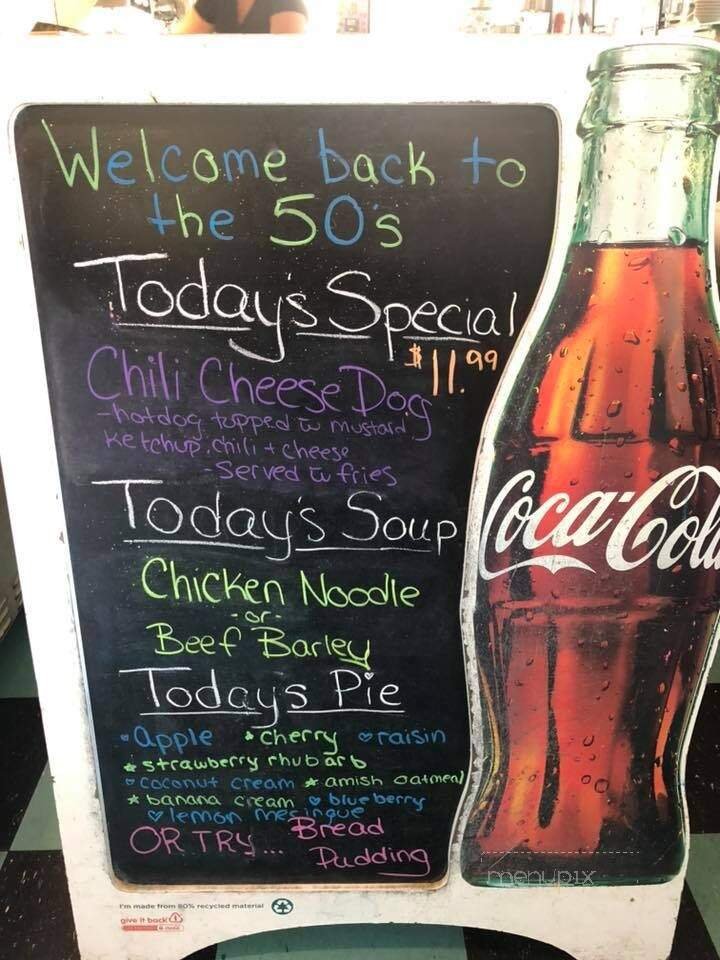 Welcome back to
the 50's
Today's Special
$11.99
Chili Cheese Dog
-hotdog topped w mustard
ketchup, chili + cheese
-Served w fries
Today's Soup
Chicken Noodle
-or-
Beef Barley
Today's Pie
apple cherry raisin
strawberry rhubarb
coconut cream amish oatmeal
banana cream blueberry
lemon meringue
OR TRY... Bread
Pudding
Coca-Cola
menupix
I'm made from 80% recycled material
give it back